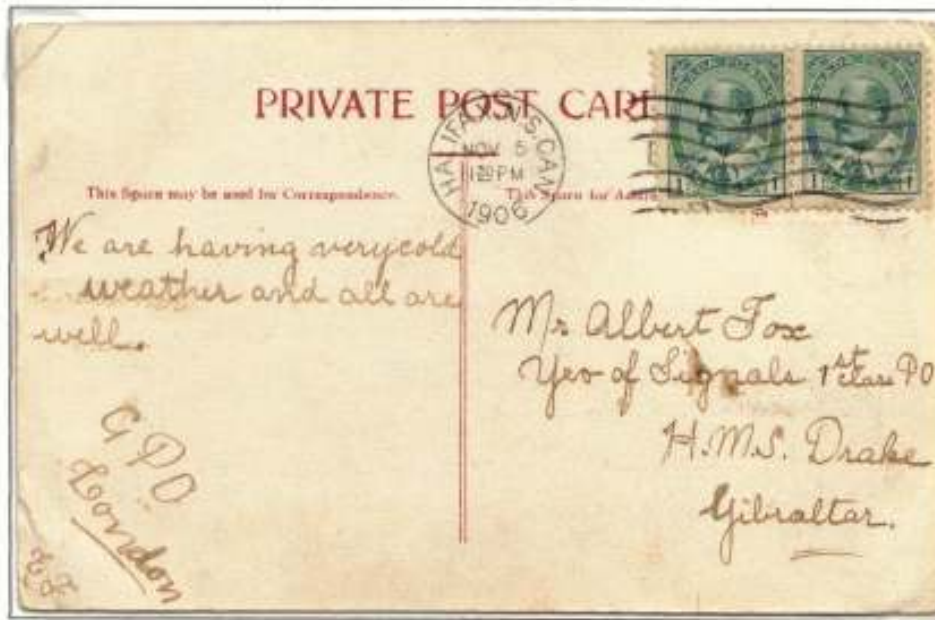 PRIVATE POST CAR
HALIFAX, N.S. CAN.
NOV 5
PM
1906
This Space may be used for Correspondence.
This Space for
1 1
1 1
We are having very cold
weather and all are
well.
Mr Albert Fox
Yeo of Signals 1st class PO
H.M.S. Drake
Gibraltar.
G P O
London